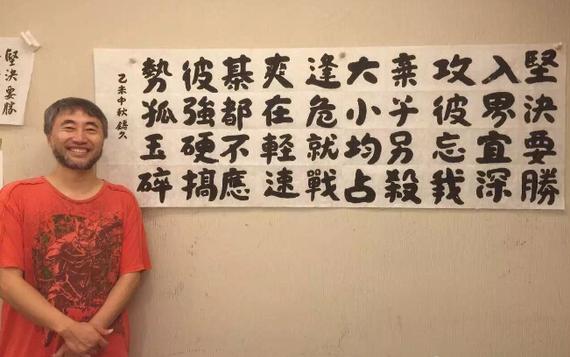 堅決要勝
入界宜深
攻彼忘我
棄子另殺
大小均占
逢危就戰
爽在輕速
棊都不應
彼強硬搞
勢孤玉碎
乙未中秋
堅決要勝